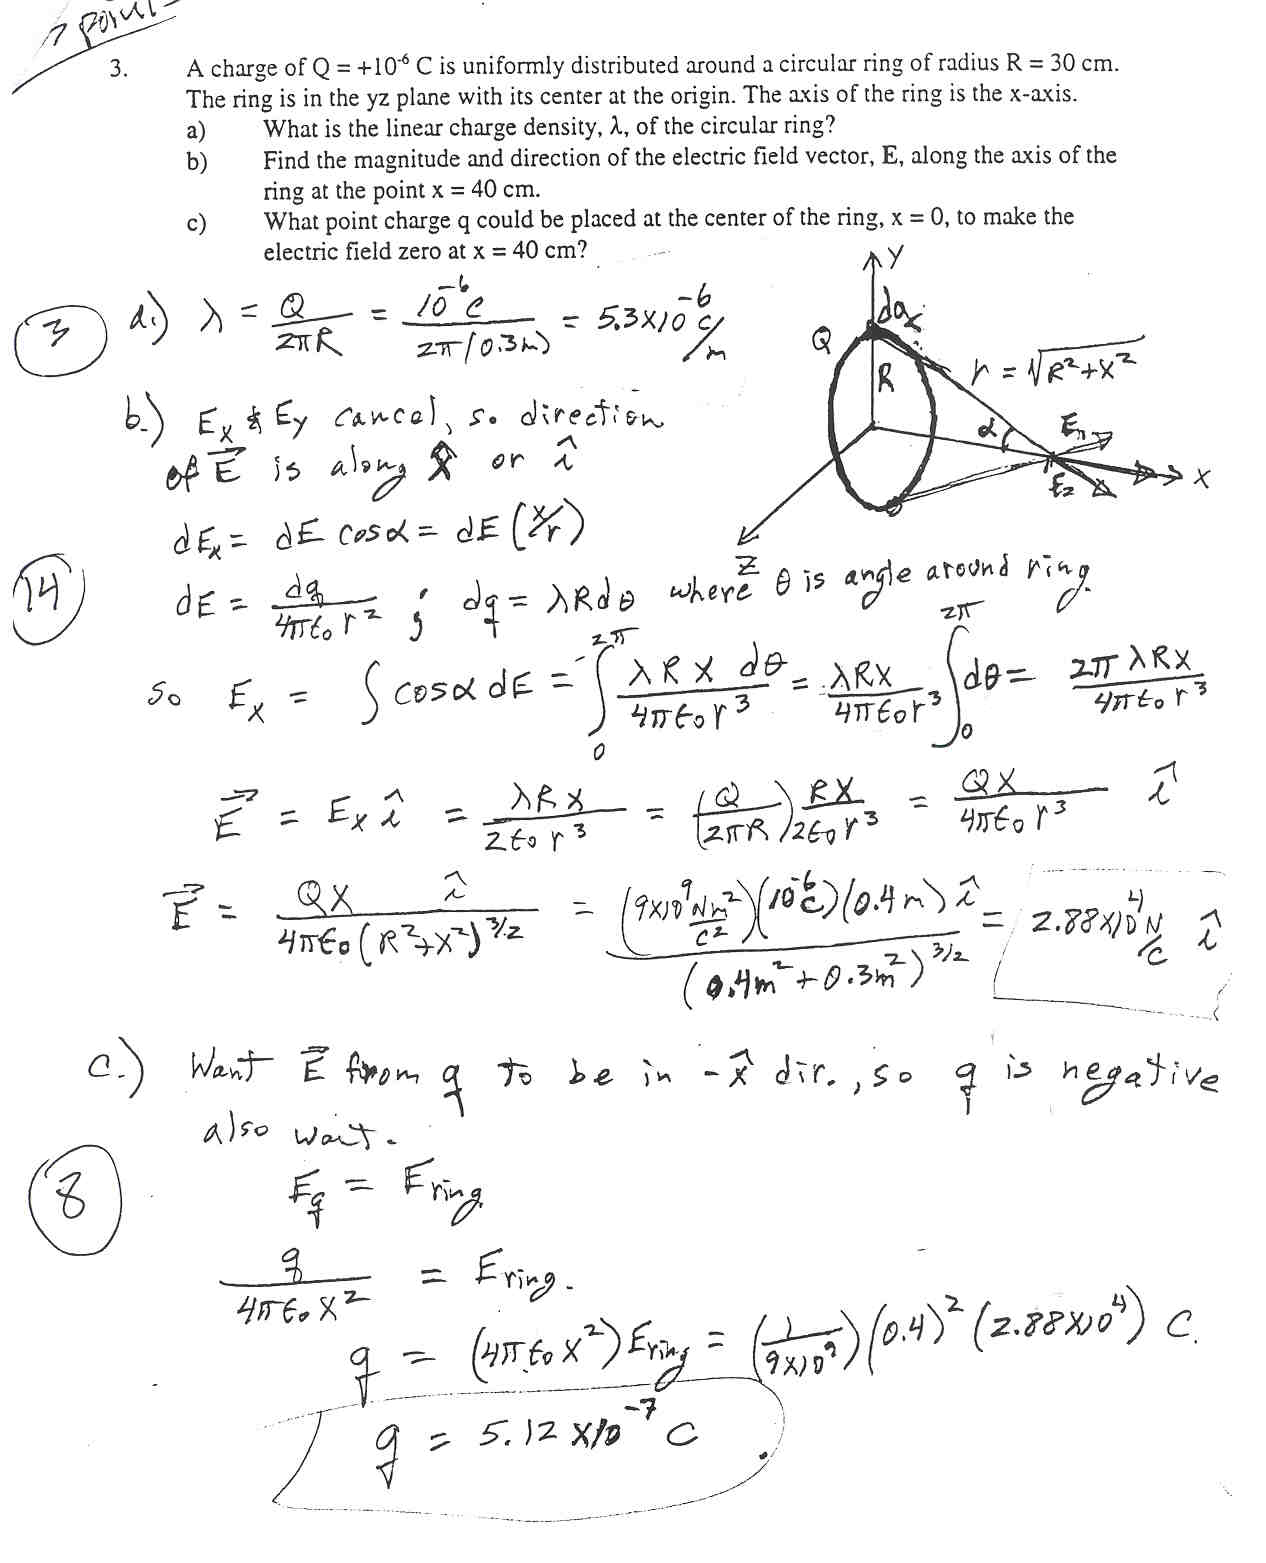 7 point
3. A charge of Q = +10⁻⁶ C is uniformly distributed around a circular ring of radius R = 30 cm.
The ring is in the yz plane with its center at the origin. The axis of the ring is the x-axis.
a) What is the linear charge density, λ, of the circular ring?
b) Find the magnitude and direction of the electric field vector, E, along the axis of the
ring at the point x = 40 cm.
c) What point charge q could be placed at the center of the ring, x = 0, to make the
electric field zero at x = 40 cm?
y
dq
Q
R
r = √(R²+x²)
α
E₁
E₂
x
z
3
a.) λ = Q/(2πR) = 10⁻⁶ C/(2π(0.3m)) = 5.3x10⁻⁶ C/m
b.) Ex & Ey cancel, so direction
of E⃗ is along x̂ or î
dEx = dE cosα = dE (x/r)
14
dE = dq/(4πε₀ r²) ; dq = λRdθ where θ is angle around ring.
so Ex = ∫ cosα dE = ∫₀^2π λRx dθ/(4πε₀r³) = λRx/(4πε₀r³) ∫₀^2π dθ = 2πλRx/(4πε₀r³)
E⃗ = Ex î = λRx/(2ε₀r³) = (Q/(2πR)) Rx/(2ε₀r³) = Qx/(4πε₀r³) î
E⃗ = Qx î/(4πε₀(R²+x²)^3/2) = (9x10⁹ Nm²/C²)(10⁻⁶C)(0.4m) î/(0.4m²+0.3m²)^3/2 = 2.88x10⁴ N/C î
c.) Want E⃗ from q to be in -x̂ dir., so q is negative
also want.
8
Eq = Ering
q/(4πε₀x²) = Ering.
q = (4πε₀x²)Ering = (1/9x10⁹)(0.4)²(2.88x10⁴) C.
q = 5.12 x10⁻⁷ C